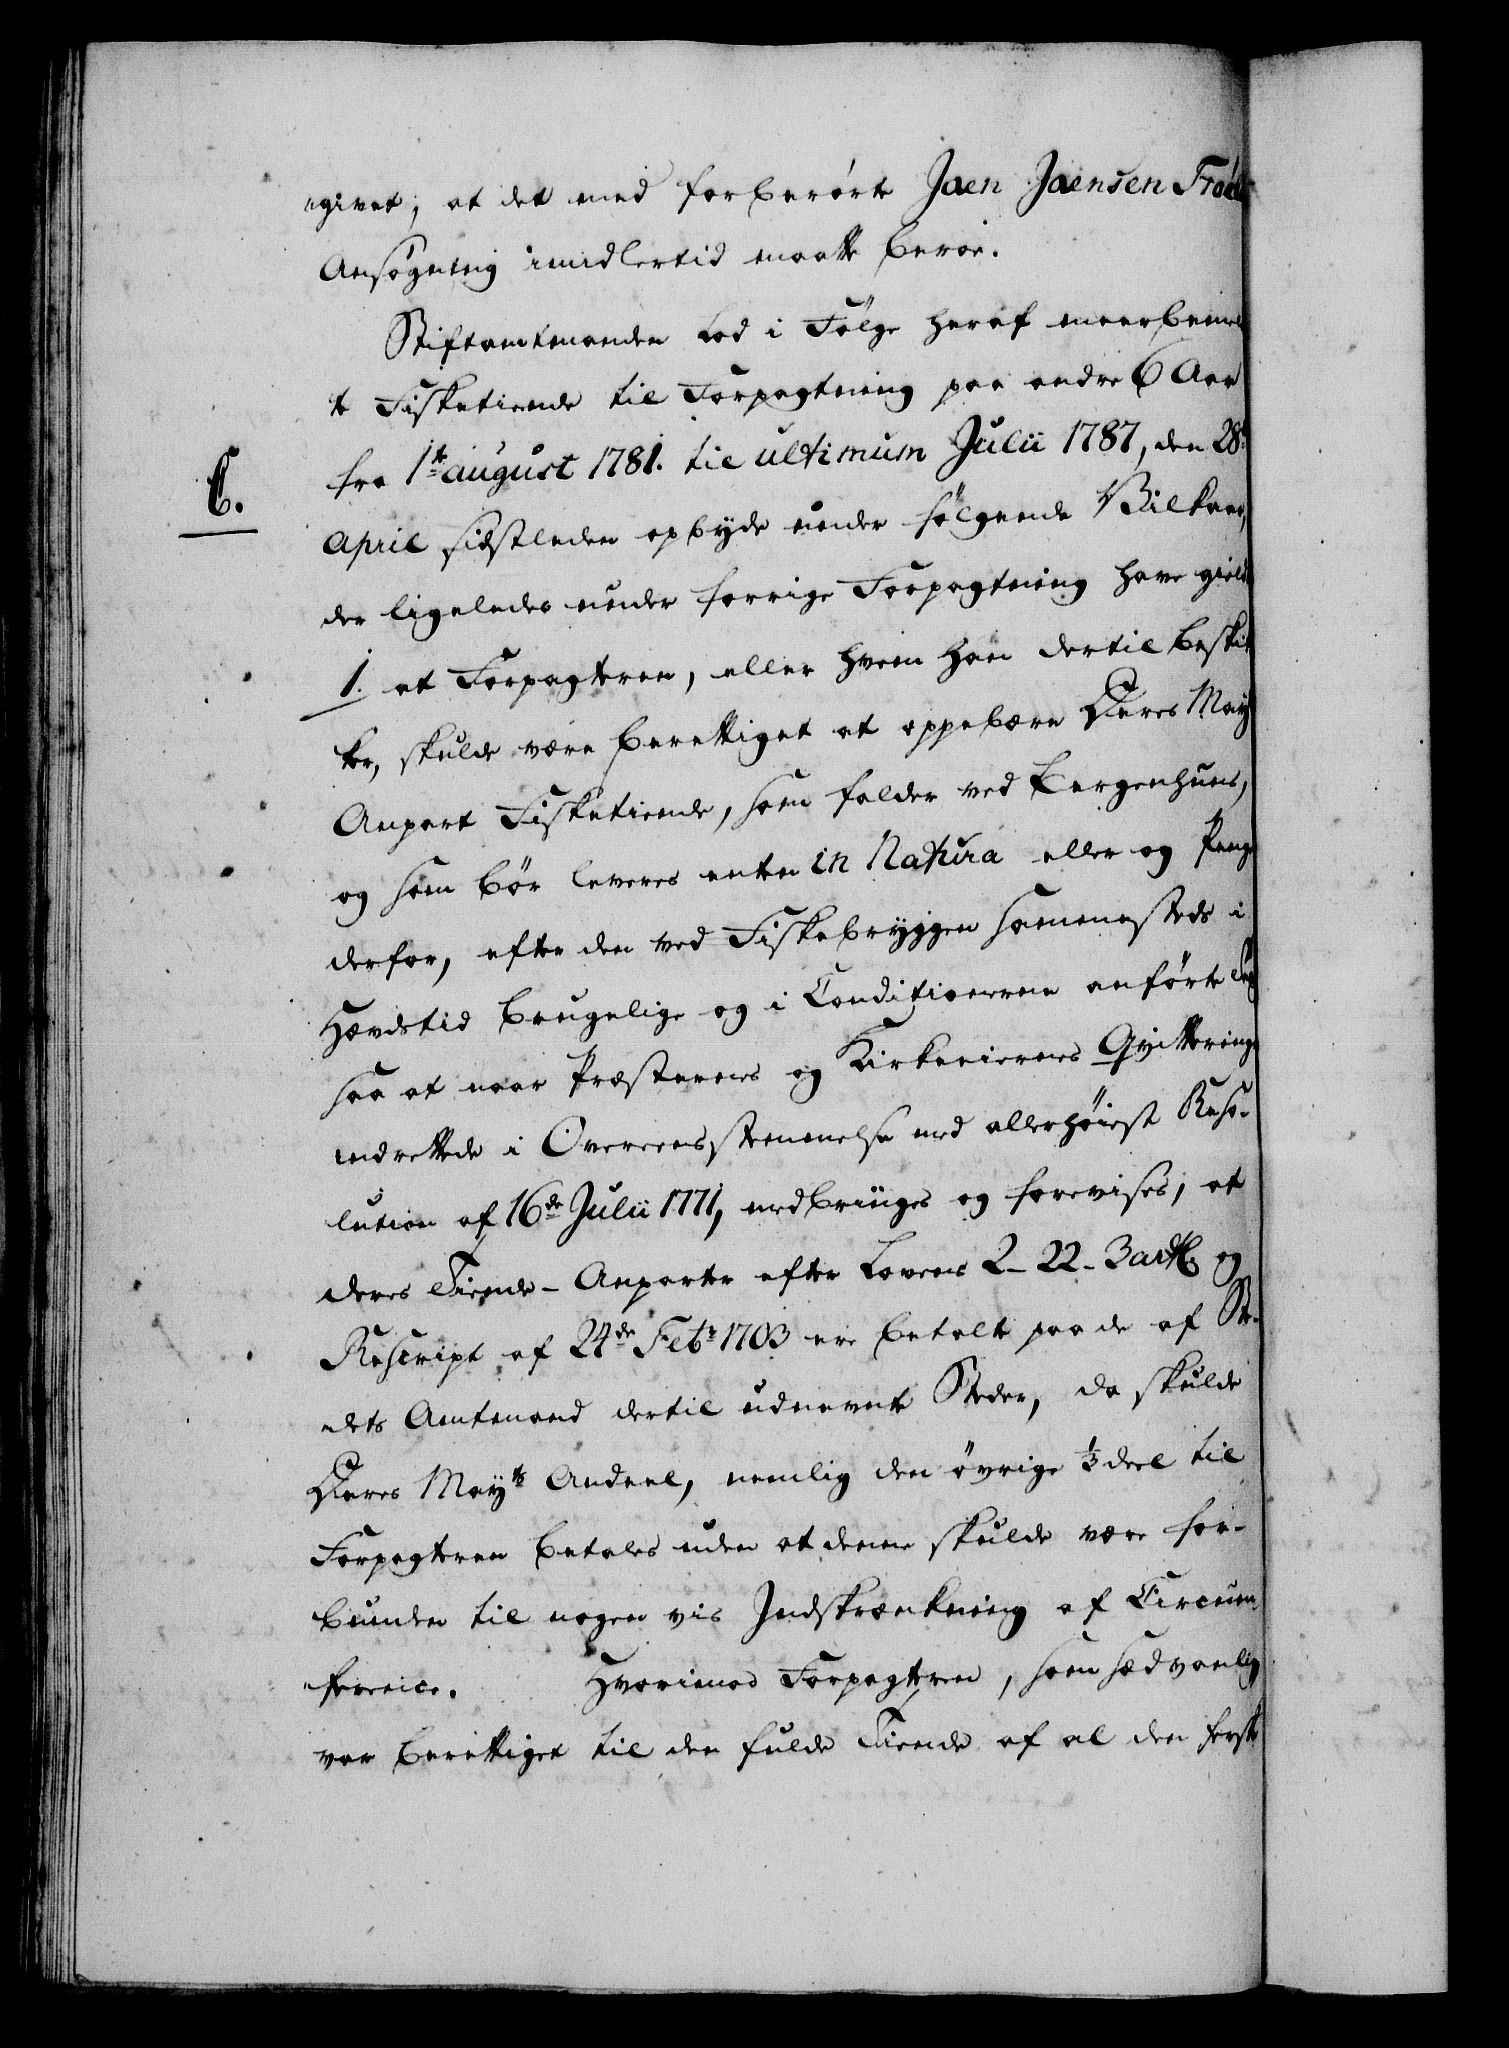 givet, at det med forberørte Joen Joensen
Ansøgning imidlertid maatte beroe.
Stiftamtmanden lod i Følge heraf meerbemel
te Fisketiende til Forpagtning paa andre 6 Aar
fra 1te august 1781. til ultimum Julii 1787, den 28de
C.
April sidstleden opbyde under følgende Vilkaar,
der ligeledes under forrige Forpagtning have gield
1. at Forpagteren, eller hvem han dertil beskik
ker, skulde være berettiget at oppebære Deres May
Anpart Fisketiende, som falder ved Bergenhuus,
og som bør leveres enten in Natura eller og Penge
derfor, efter den ved Fiskebryggen sammesteds i
Hævdstid brugelige og i Conditionerne anførte
saa at naar Præsternes og Kirkeeiernes Qvitteringer
indrettede i Overeensstemmelse med allerhøiest Reso-
lution af 16de Julii 1771, medbringes og forevises, at
deres Tiende-Anparter efter Lovens 2-22-3 artl. og
Rescript af 24de Febr 1703 ere betalte paa de af Ste-
dets Amtmand dertil udnevnte Steder, da skulde
Deres Mayts Andeel, nemlig den øvrige 1/3 deel til
Forpagteren betales uden at denne skulde være for-
bunden til nogen vis Indskrænkning af Circum
ference. Hvorimod Forpagteren, som sædvanlig
var berettiget til den fulde Tiende af al den fersk